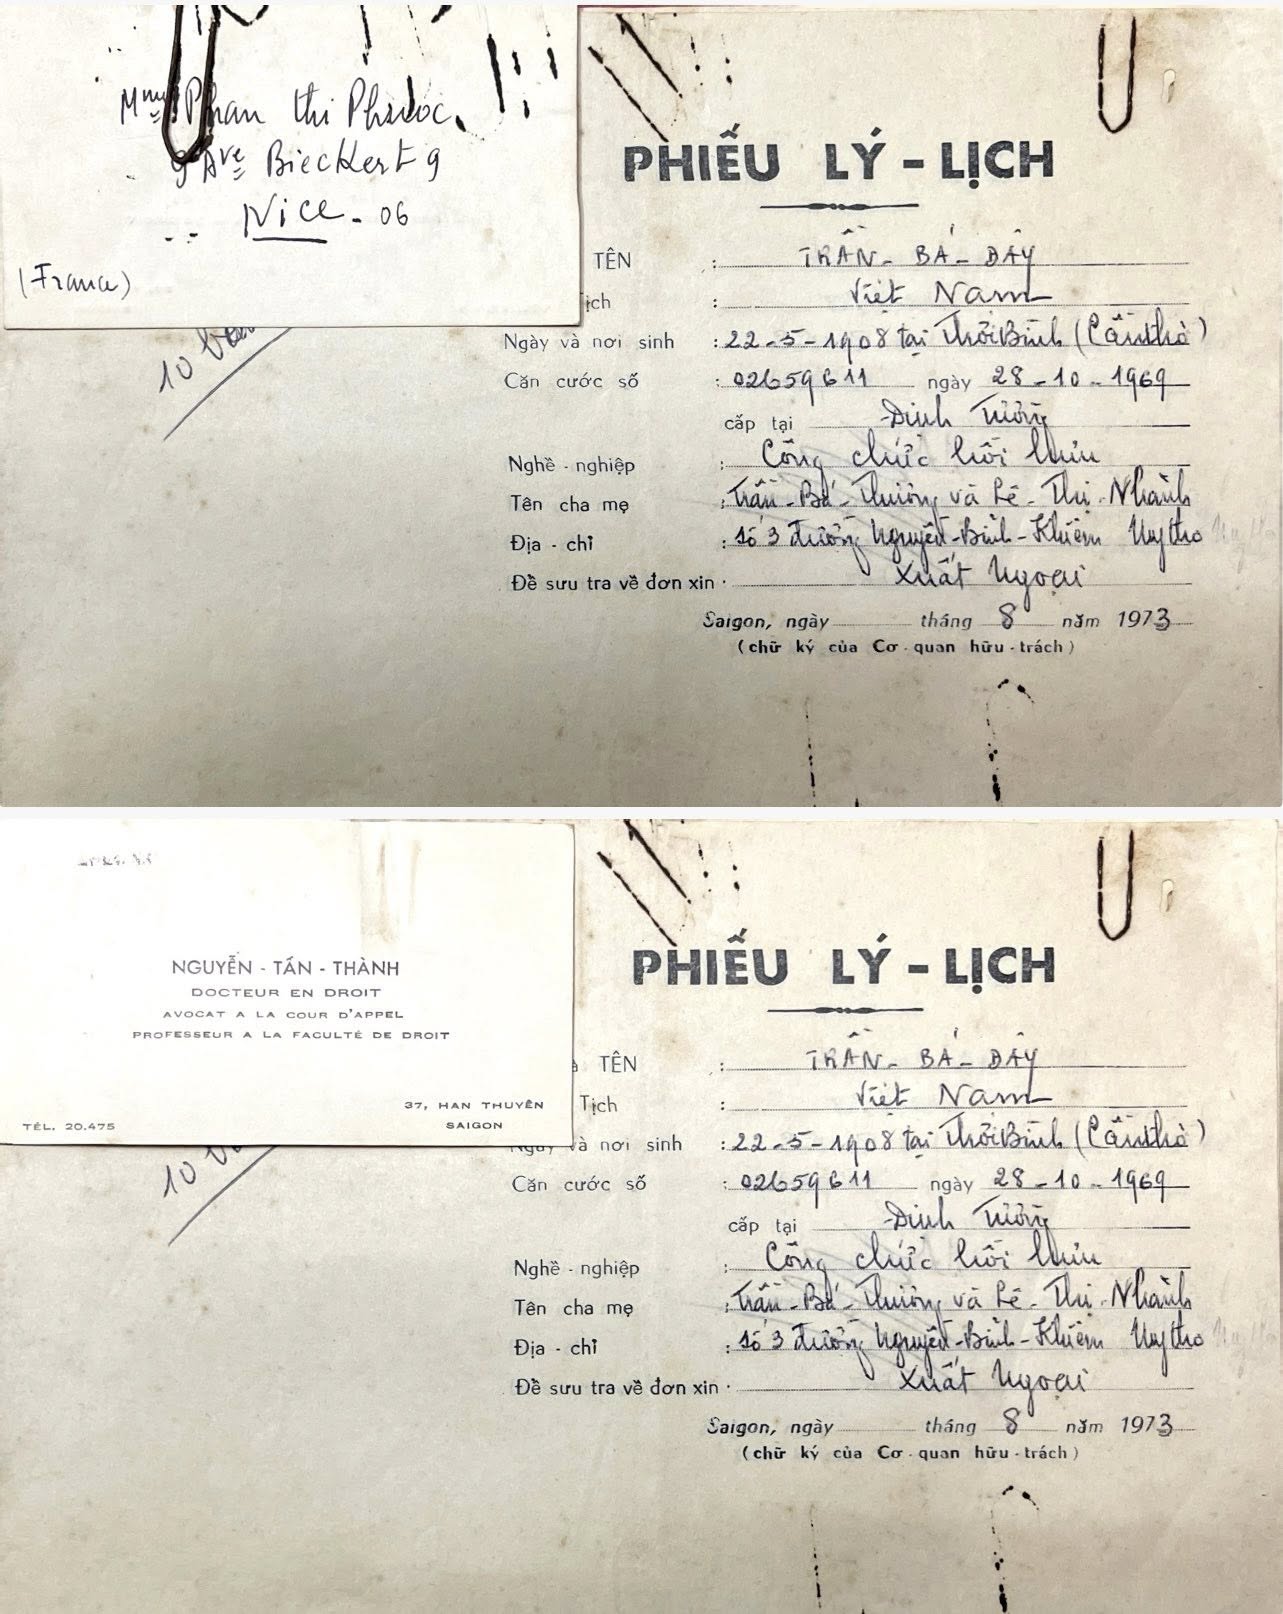 Mme Phan thi Phước
9 Ave Bieckert 9
Nice - 06
(France)
10 bản
PHIẾU LÝ - LỊCH
TÊN : TRẦN - BÁ - ĐÂY
ịch : Việt Nam
Ngày và nơi sinh : 22-5-1908 tại Thới Bình (Cần thơ)
Căn cước số : 02659611 ngày 28-10-1969
cấp tại Định Tường
Nghề - nghiệp : Công chức hồi hưu
Tên cha mẹ : Trần-Bá-Thường và Lê-Thị-Nhành
Địa - chỉ : Số 3 đường Nguyễn-Bỉnh-Khiêm Mytho
Để sưu tra về đơn xin : Xuất Ngoại
Saigon, ngày tháng 8 năm 1973
(chữ ký của Cơ - quan hữu - trách)
NGUYỄN - TẤN - THÀNH
DOCTEUR EN DROIT
AVOCAT A LA COUR D'APPEL
PROFESSEUR A LA FACULTÉ DE DROIT
37, HAN THUYÊN
TÉL. 20.475 SAIGON
10
PHIẾU LÝ - LỊCH
TÊN : TRẦN - BÁ - ĐÂY
Tịch : Việt Nam
Ngày và nơi sinh : 22-5-1908 tại Thới Bình (Cần thơ)
Căn cước số : 02659611 ngày 28-10-1969
cấp tại Định Tường
Nghề - nghiệp : Công chức hồi hưu
Tên cha mẹ : Trần-Bá-Thường và Lê-Thị-Nhành
Địa - chỉ : Số 3 đường Nguyễn-Bỉnh-Khiêm Mytho
Để sưu tra về đơn xin : Xuất Ngoại
Saigon, ngày tháng 8 năm 1973
(chữ ký của Cơ - quan hữu - trách)